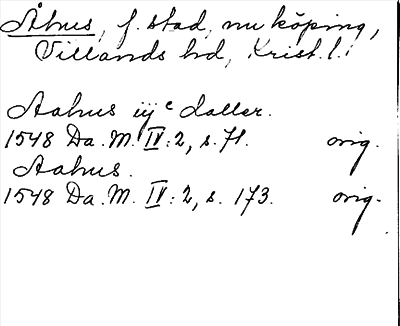 Åhus, f. stad, nu köping,
Villands hd, Krist. l.
Aahus iij c daller.
1548 Da. M. IV: 2, s. 71. orig.
Aahus.
1548 Da. M. IV: 2, s. 173. orig.